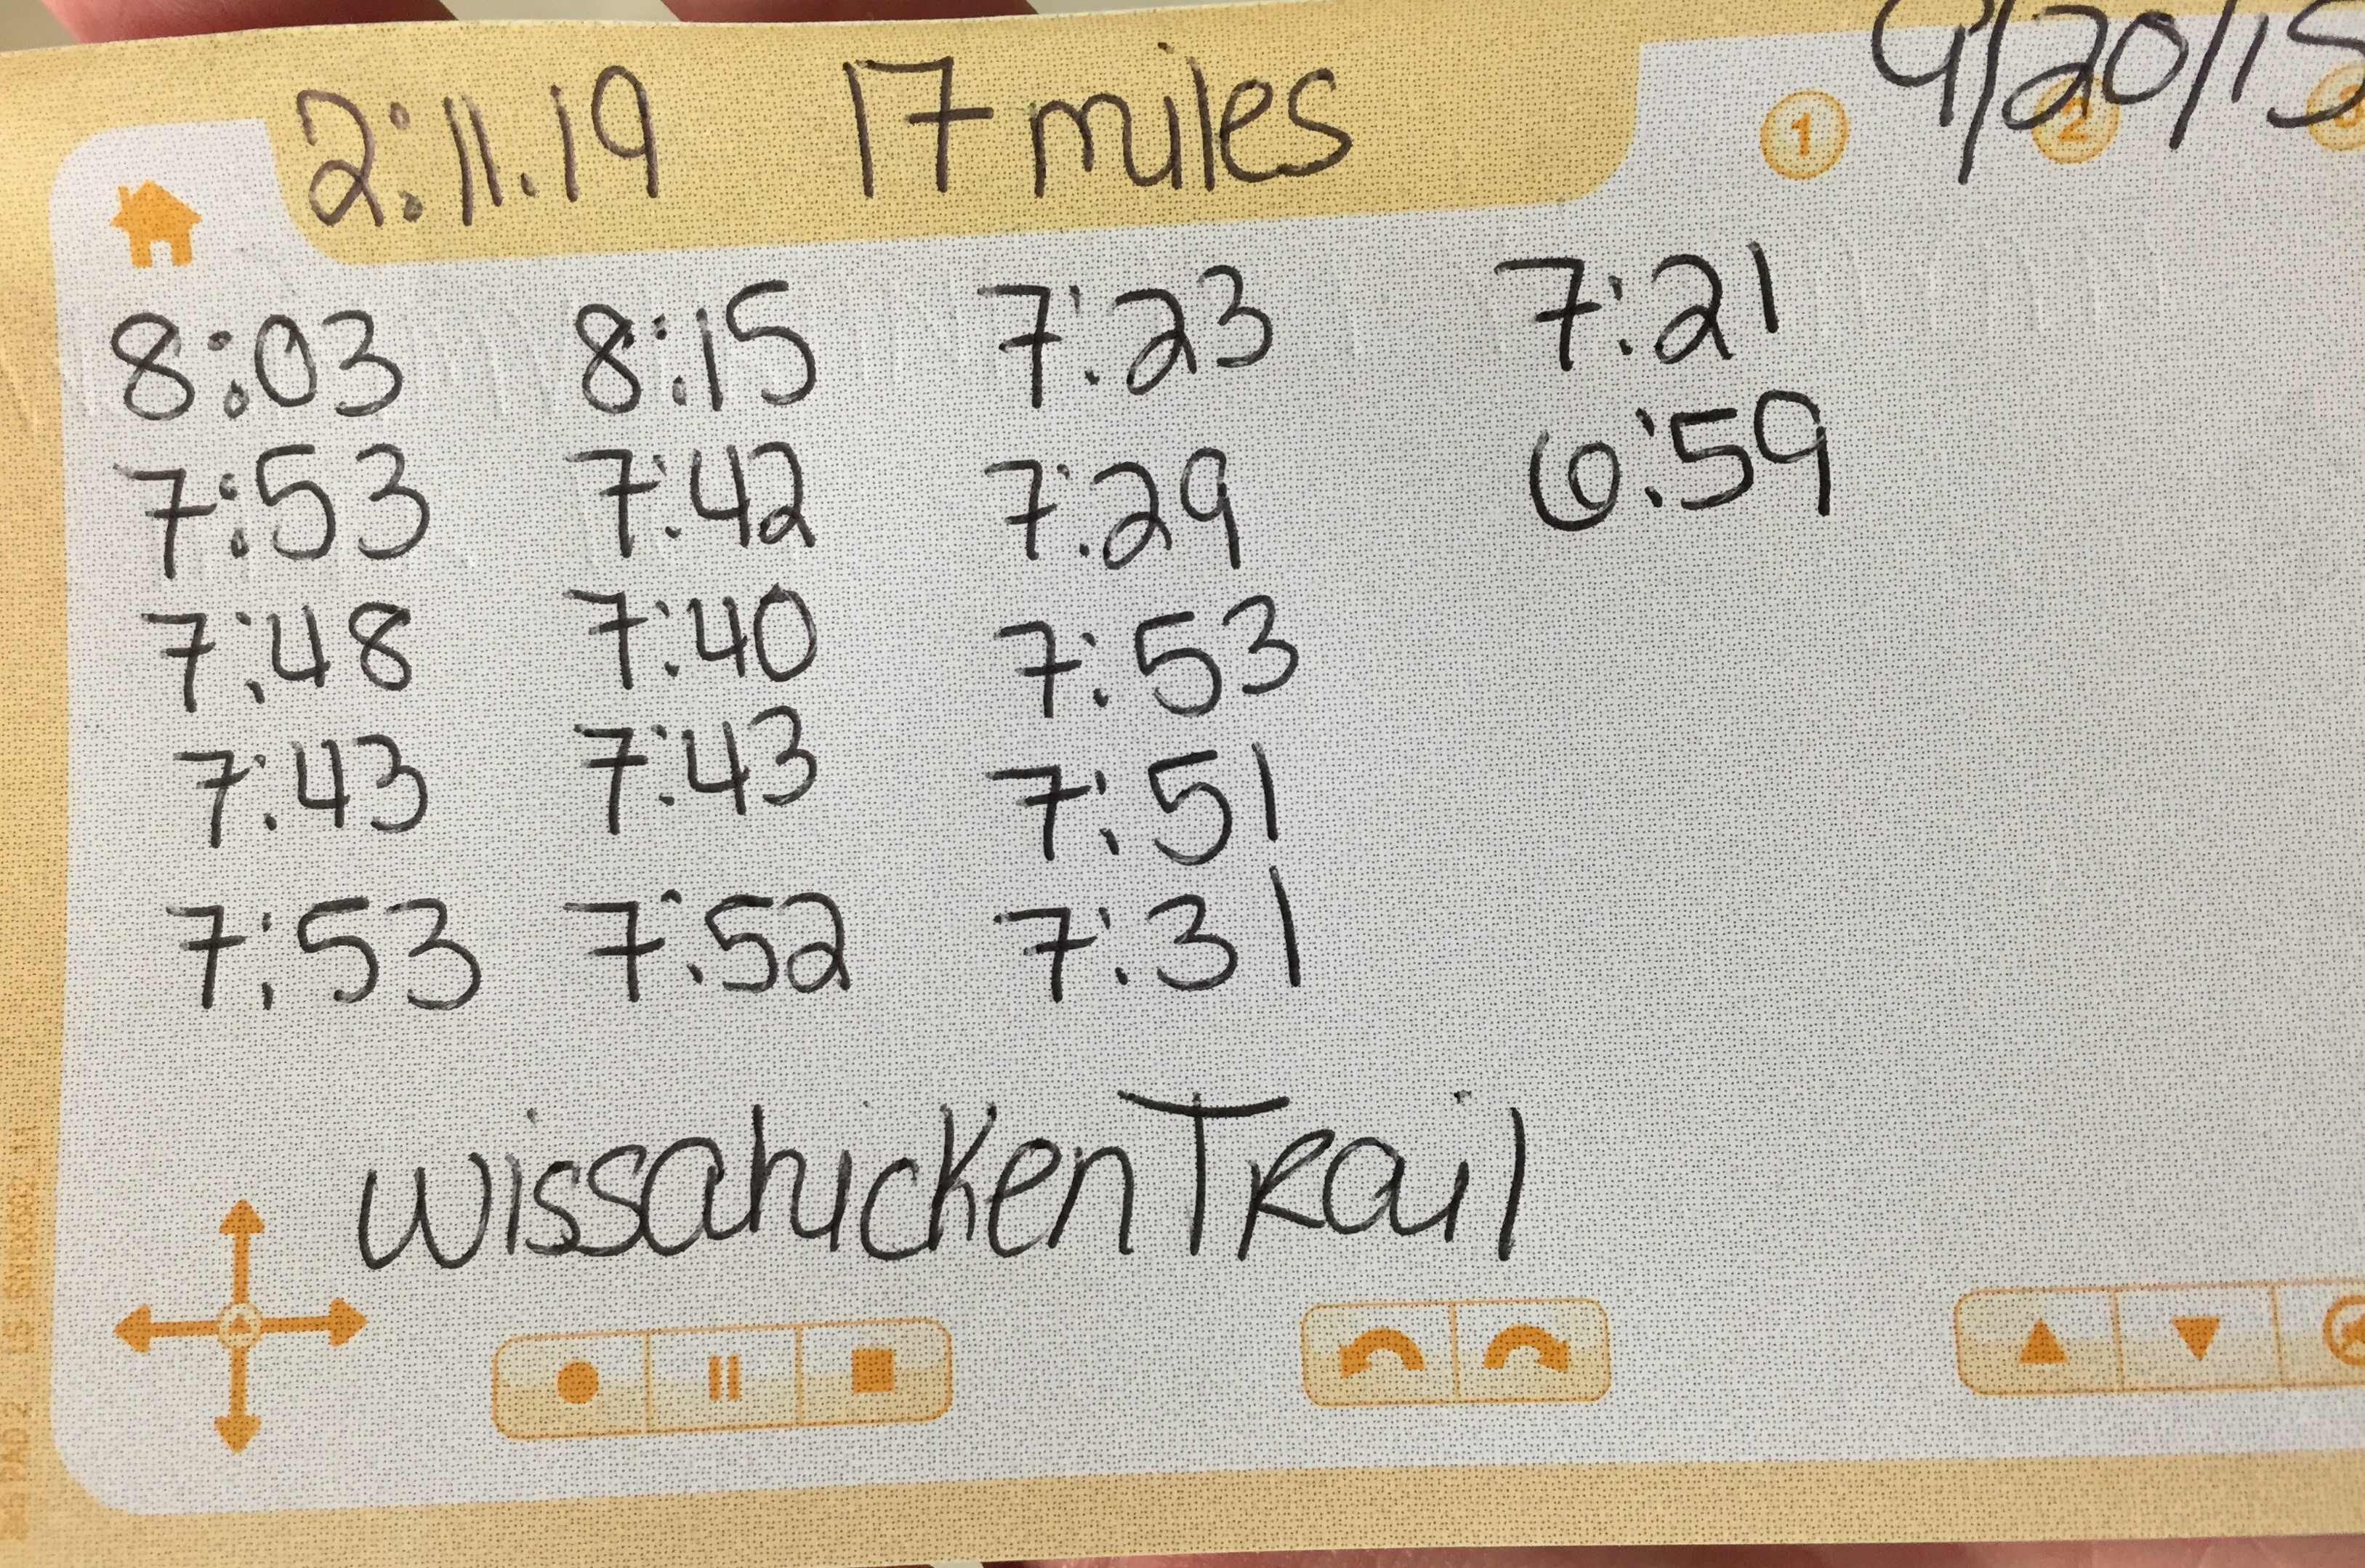 2:11.19 17 miles 9/20/15
1 2
8:03 8:15 7:23 7:21
7:53 7:42 7:29 6:59
7:48 7:40 7:53
7:43 7:43 7:51
7:53 7:52 7:31
Wissahicken Trail